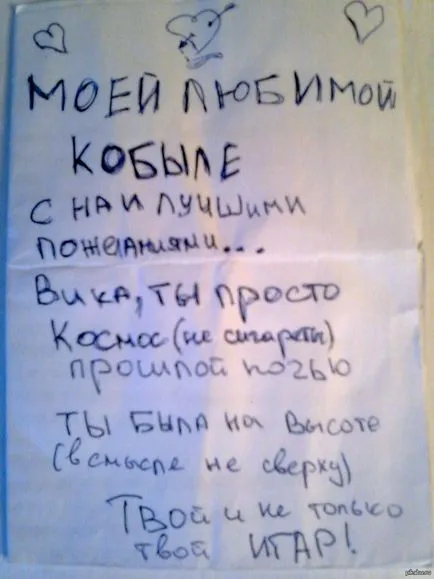 МОЕЙ ЛЮБИМОЙ
КОБЫЛЕ
С НАИЛУЧШИМИ
ПОЖЕЛАНИЯМИ...
Вика, ты просто
Космос (не сигареты)
прошлой ночью
ТЫ БЫЛА на высоте
(в смысле не сверху)
Твой и не только
твой ИГАР!